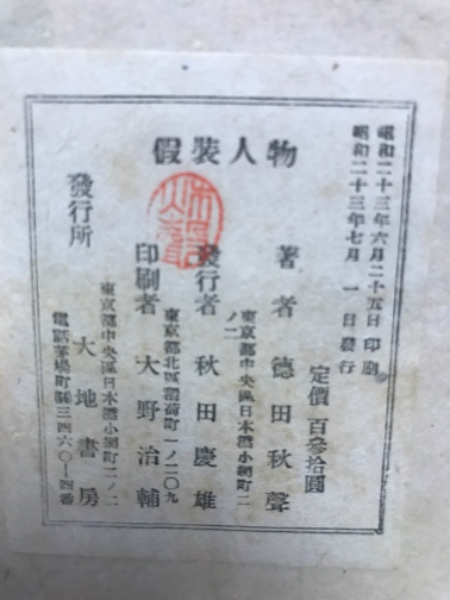 假裝人物
昭和二十三年六月二十五日 印刷
昭和二十三年七月 一 日 發行
定價 百參拾圓
著者 德田秋聲
東京都中央區日本橋小網町二ノ二
發行者 秋田慶雄
東京都北區稻荷町一ノ二〇九
印刷者 大野治輔
發行所
東京都中央區日本橋小網町二ノ二
大地書房
電話茅場町㈹三四六〇—四番